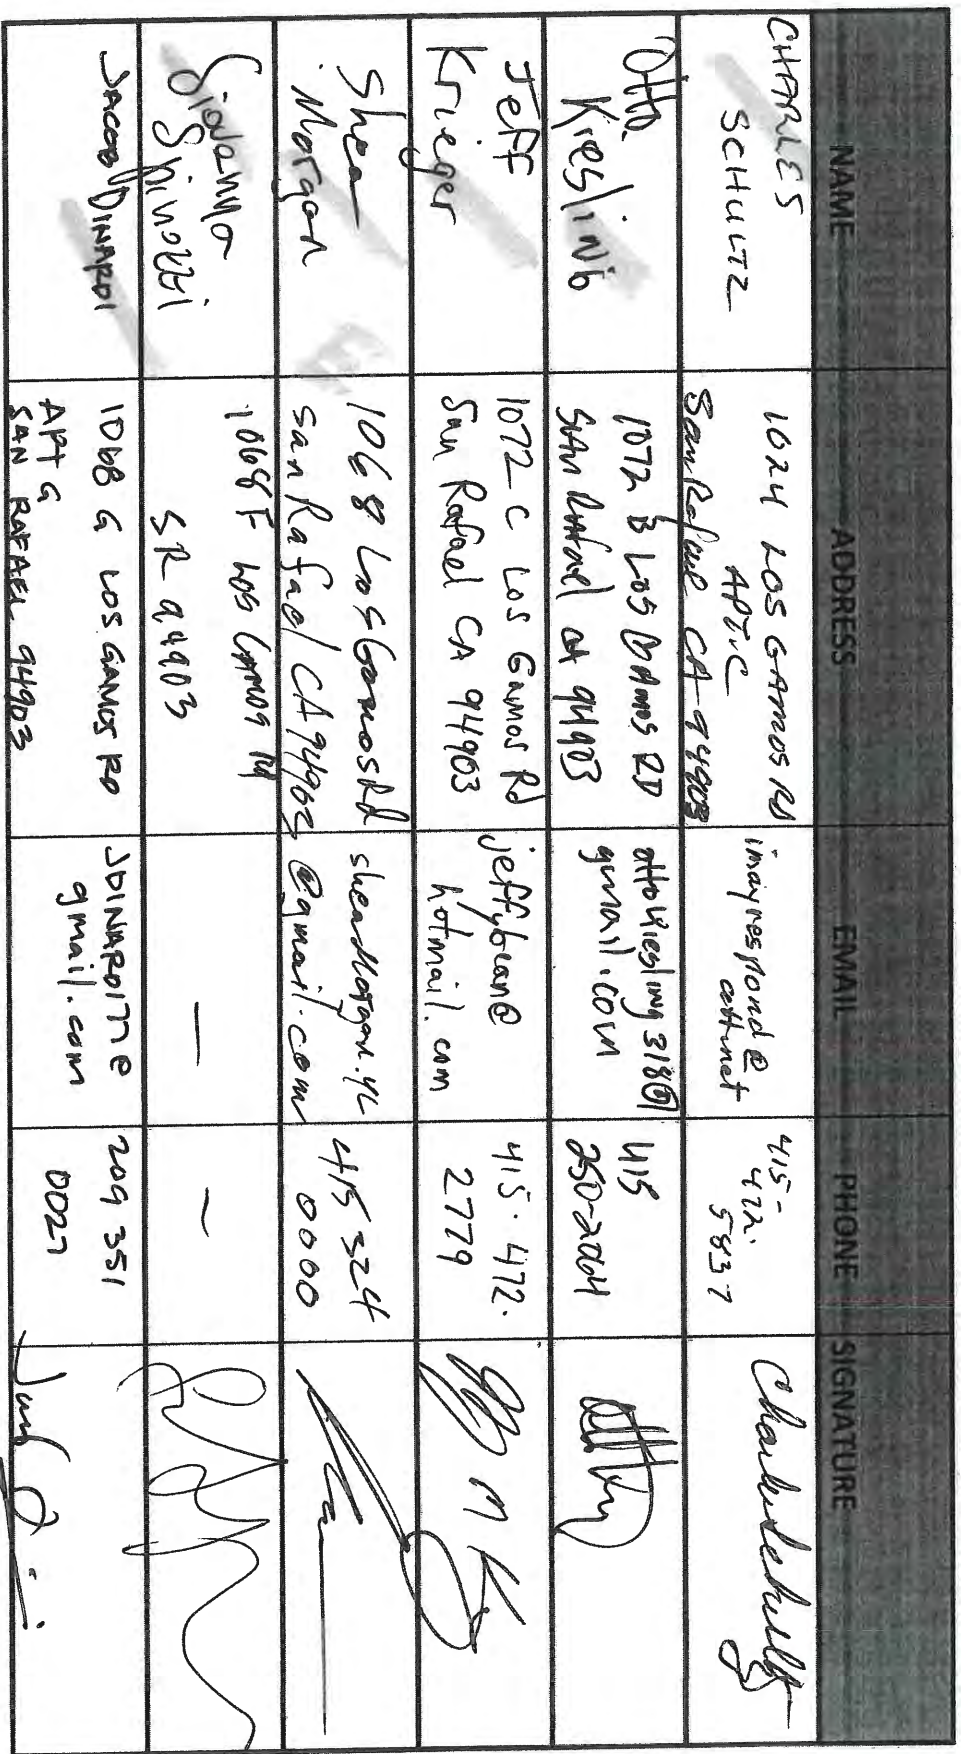 NAME ADDRESS EMAIL PHONE SIGNATURE
CHARLES
SCHULTZ
1024 LOS GAMOS RD
APT. C
San Rafael CA 94903
imayrespond@
att.net
415-
472.
5837
Otto
Kiesling
1072 B LOS GAMOS RD
SAN Rafael CA 94903
ottokiesling318@
gmail.com
415
250-2064
Jeff
Krieger
1072 C Los Gamos Rd
San Rafael CA 94903
jeffybean@
hotmail.com
415.472.
2779
Shea
Morgan
1068 Los Gamos Rd
San Rafael CA 94903
@gmail.com
415 324
0000
Giovanna
Spinozzi
1068 F LOS GAMOS
SR 94903
—
—
JACOB DINARDI
1068 G LOS GAMOS RD
APT G
SAN RAFAEL 94903
JDINARDI77@
gmail.com
209 351
0027